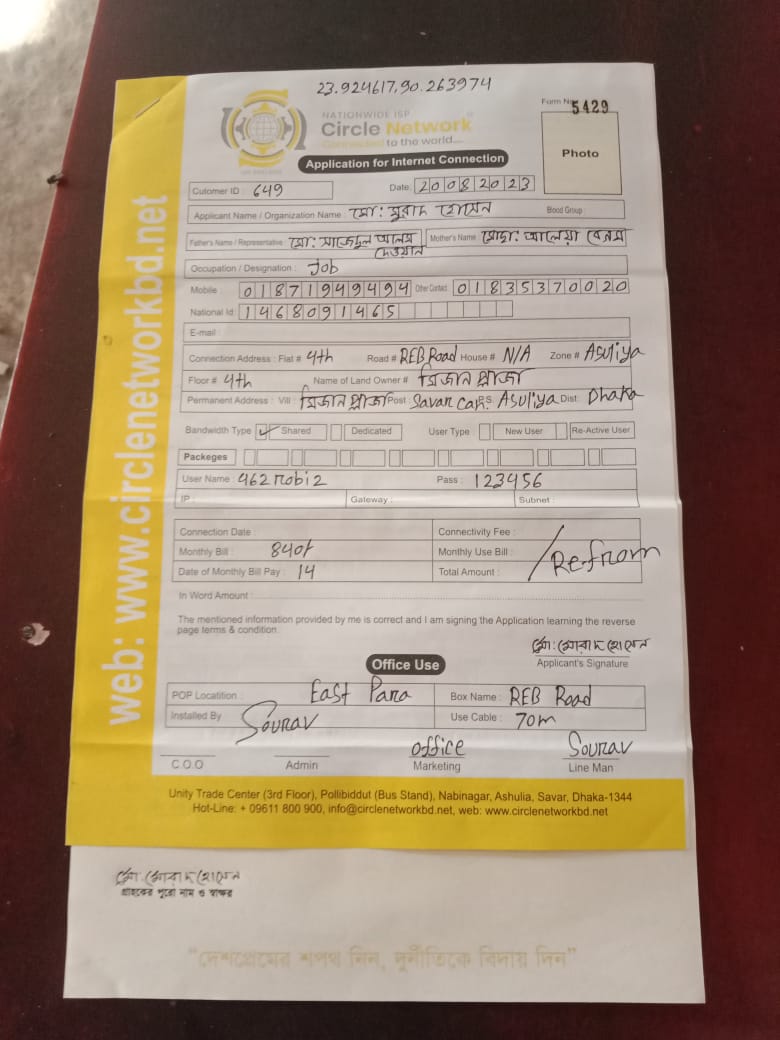 23.924617,90.263974
NATIONWIDE ISP
Circle Network
Connected to the world....
Form No 5429
Application for Internet Connection
Photo
Cutomer ID : 649
Date: 20082023
Applicant Name / Organization Name : মো: মুরাদ হোসেন Blood Group :
Father's Name / Representative : মো: সাজেদুল আলম দেওয়ান Mother's Name মোছা: আলেয়া বেগম
Occupation / Designation : Job
Mobile : 01871949494 Other Contact : 01835370020
National Id: 1468091465
E-mail :
Connection Address : Flat # 4th Road # REB Road House # N/A Zone # Asuliya
Floor # 4th Name of Land Owner # মিজান প্লাজা
Permanent Address : Vill : মিজান প্লাজা Post : Savar Can P.S. Asuliya Dist: Dhaka
Bandwidth Type ✓ Shared Dedicated User Type New User Re-Active User
Packeges
User Name : 462 Pass : 123456
IP : Gateway : Subnet :
Connection Date : Connectivity Fee :
Monthly Bill : 840/ Monthly Use Bill :
Date of Monthly Bill Pay : 14 Total Amount : Re-from
In Word Amount :
The mentioned information provided by me is correct and I am signing the Application learning the reverse
page terms & condition.
মো: মোরাদ হোসেন
Applicant's Signature
Office Use
POP Locatition : East Para Box Name : REB Road
Installed By Sourav Use Cable : 70m
office Sourav
C.O.O Admin Marketing Line Man
Unity Trade Center (3rd Floor), Pollibiddut (Bus Stand), Nabinagar, Ashulia, Savar, Dhaka-1344
Hot-Line: + 09611 800 900, info@circlenetworkbd.net, web: www.circlenetworkbd.net
web: www.circlenetworkbd.net
মো: মোরাদ হোসেন
গ্রাহকের পুরো নাম ও স্বাক্ষর
“দেশপ্রেমের শপথ নিন, দুর্নীতিকে বিদায় দিন”